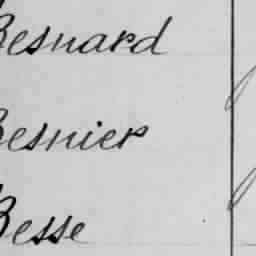 Besnard
Besnier
Besse